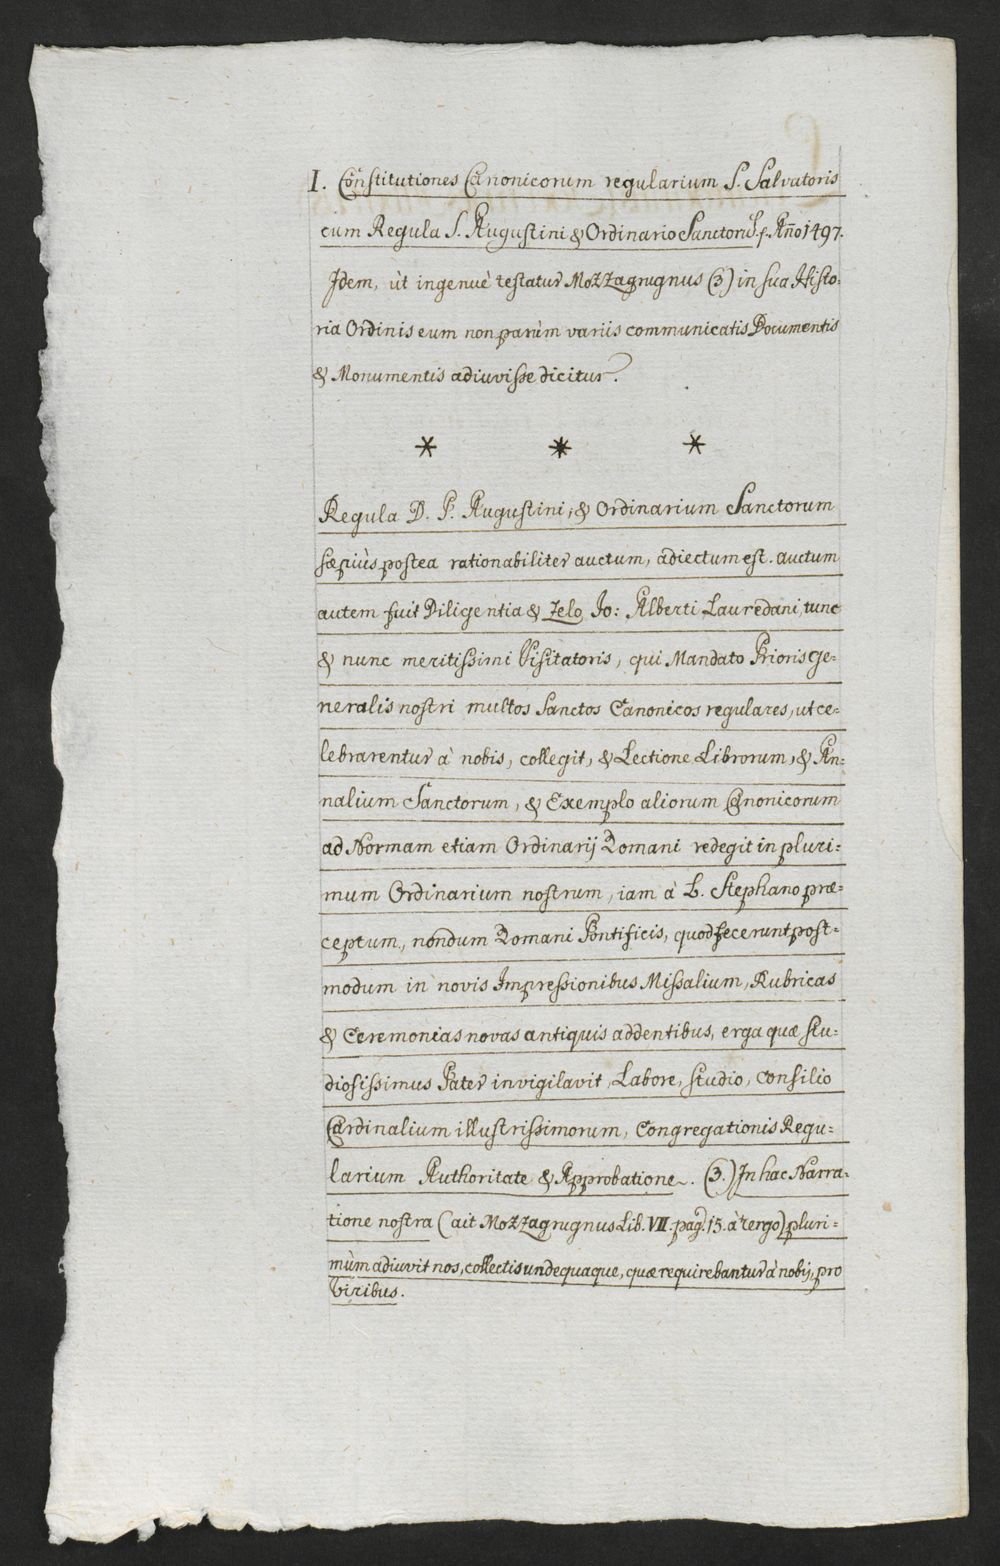 I. Constitutiones Canonicorum regularium S. Salvatoris
cum Regula S. Augustini & Ordinario Sanctorũ. f. Año 1497.
Idem, ùt ingenuè testatur Mozzagrugnus (3) in sua Histo:
ria Ordinis eum non parùm variis communicatis Documentis
& Monumentis adiuvisse dicitur.
* * *
Regula D. P. Augustini, & Ordinarium Sanctorum
sæpiùs postea rationabiliter auctum, adiectum est. auctum
autem fuit Diligentia & Zelo Jo: Alberti Lauredani, tunc
& nunc meritissimi Visitatoris, qui Mandato Prioris Ge:
neralis nostri multos Sanctos Canonicos regulares, ut ce:
lebrarentur à nobis, collegit, & Lectione Librorum, & An:
nalium Sanctorum, & Exemplo aliorum Canonicorum
ad Normam etiam Ordinarij Romani redegit in pluri:
mum Ordinarium nostrum, iam à B. Stephano præ:
ceptum, nondum Romani Pontificis, quod fecerunt post:
modum in novis Impressionibus Missalium, Rubricas
& Ceremonias novas antiquis addentibus, erga quæ stu:
diosissimus Pater invigilavit, Labore, studio, consilio
Cardinalium illustrissimorum, Congregationis Regu:
larium Authoritate & Approbatione. (3.) In hac Narra:
tione nostra (ait Mozzagrugnus Lib. VII. pag. 15. à tergo) pluri:
mùm adiuvit nos, collectis undequaque, quæ requirebantur à nobis, pro
Viribus.